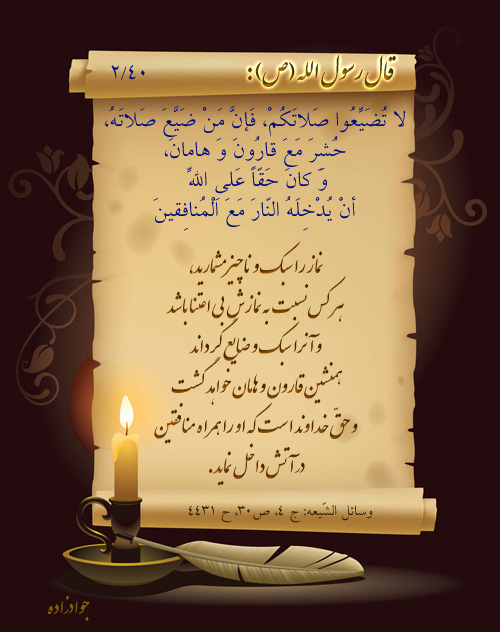 قال رسول الله (ص):
۲/۴۰
لا تُضَيِّعُوا صَلاتَكُمْ، فَإنَّ مَنْ ضَيَّعَ صَلاتَهُ،
حُشِرَ مَعَ قارُونَ وَ هامانَ،
وَ كانَ حَقّاً عَلىِ اللهِّ
أنْ يُدْخِلَهُ النّارَ مَعَ الْمُنافِقينَ
نماز را سبک و ناچیز مشمارید،
هر کس نسبت به نمازش بی اعتنا باشد
و آنرا سبک و ضایع گرداند
همنشین قارون و هامان خواهد گشت
و حقّ خداوند است که او را همراه منافقین
در آتش داخل نماید.
وسائل الشّیعه: ج ٤، ص۳۰، ح ٤٤۳۱
جوادزاده